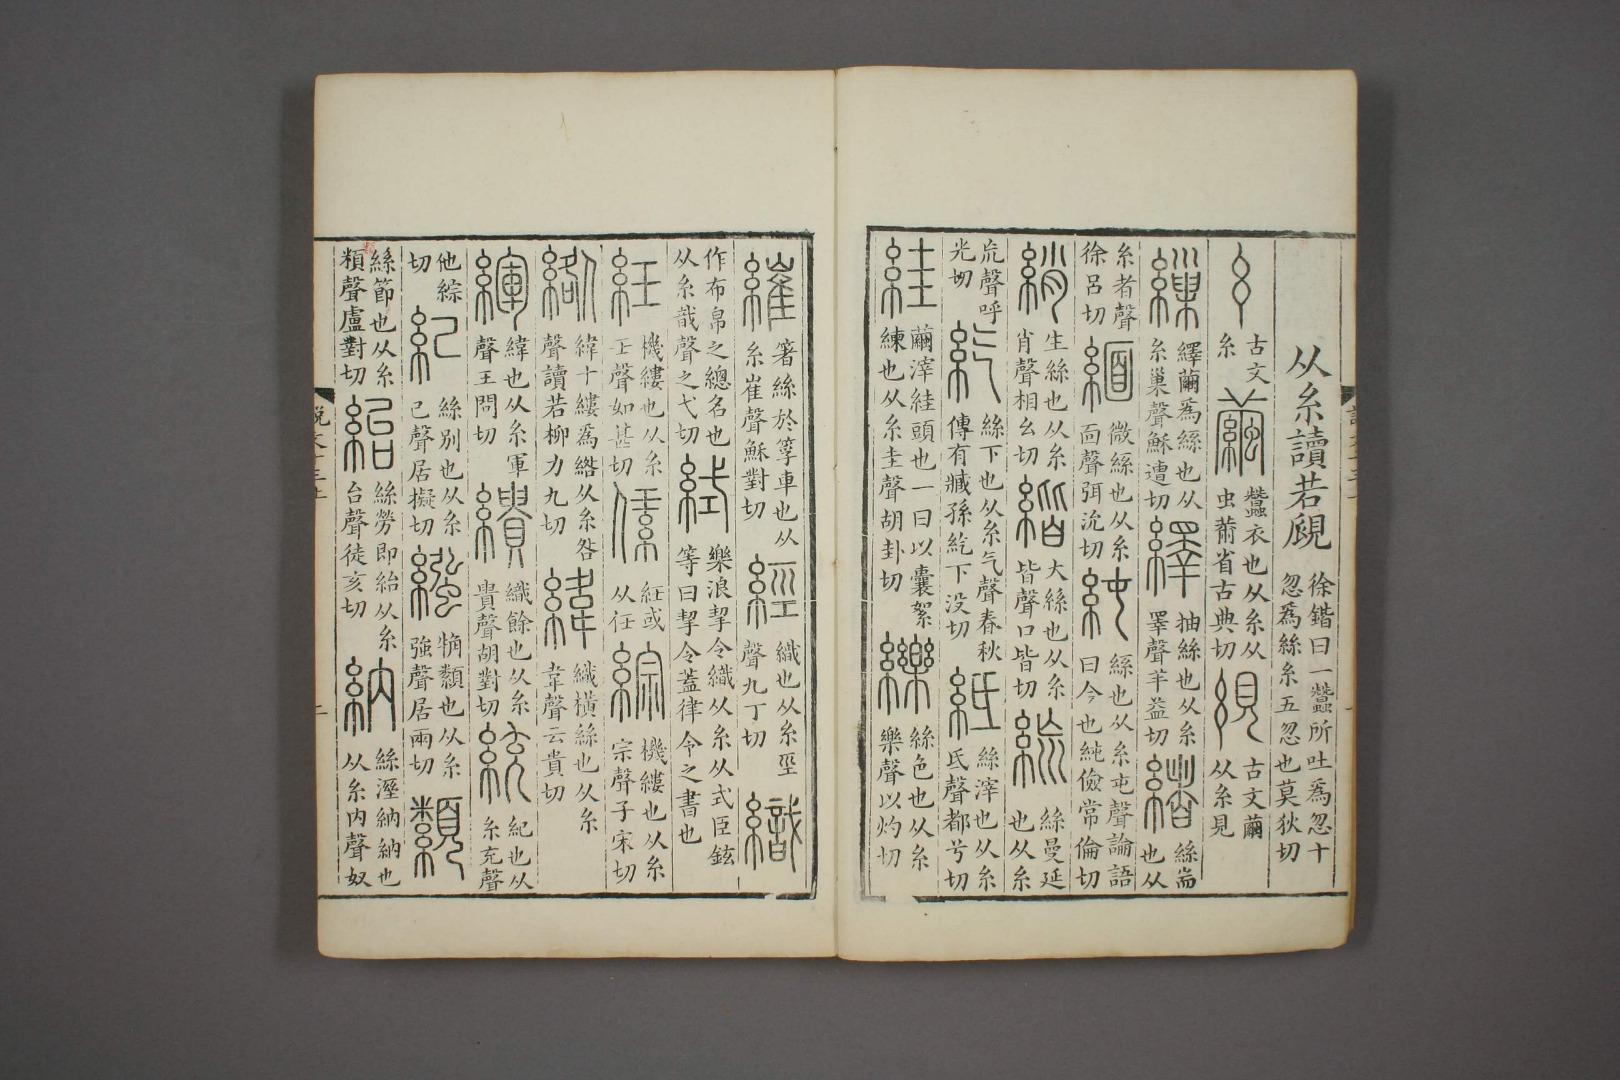 从糸讀若覛徐鍇曰一蠶所吐爲忽十忽爲絲糸五忽也莫狄切
𢆯古文糸繭蠶衣也从糸从虫黹省古典切絸古文繭从糸見
繅繹繭爲絲也从糸巢聲穌遭切繹抽絲也从糸睪聲羊益切緒絲耑也从
糸者聲徐呂切緬微絲也从糸面聲弭沇切純絲也从糸屯聲論語曰今也純儉常倫切
綃生絲也从糸肖聲相幺切緒大絲也从糸皆聲口皆切䋖絲曼延也从糸
巟聲呼光切紇絲下也从糸气聲春秋傳有臧孫紇下没切紙絲滓也从糸氐聲都兮切
絓繭滓絓頭也一曰以囊絮練也从糸圭聲胡卦切𦆅絲色也从糸樂聲以灼切
繀箸絲於筟車也从糸崔聲穌對切經織也从糸巠聲九丁切織
作布帛之總名也从糸戠聲之弋切𦀗樂浪挈令織从糸从式臣鉉等曰挈令蓋律令之書也
紝機縷也从糸壬聲如甚切𦀖紝或从任綜機縷也从糸宗聲子宋切
綹緯十縷爲綹从糸咎聲讀若柳力久切緯織橫絲也从糸韋聲云貴切
緷緯也从糸軍聲王問切繢織餘也从糸貴聲胡對切統紀也从糸充聲
他綜切紀絲別也从糸己聲居擬切繦觕纇也从糸強聲居兩切纇
絲節也从糸頪聲盧對切紿絲勞即紿从糸台聲徒亥切納絲溼納納也从糸内聲奴
説文十三上 二